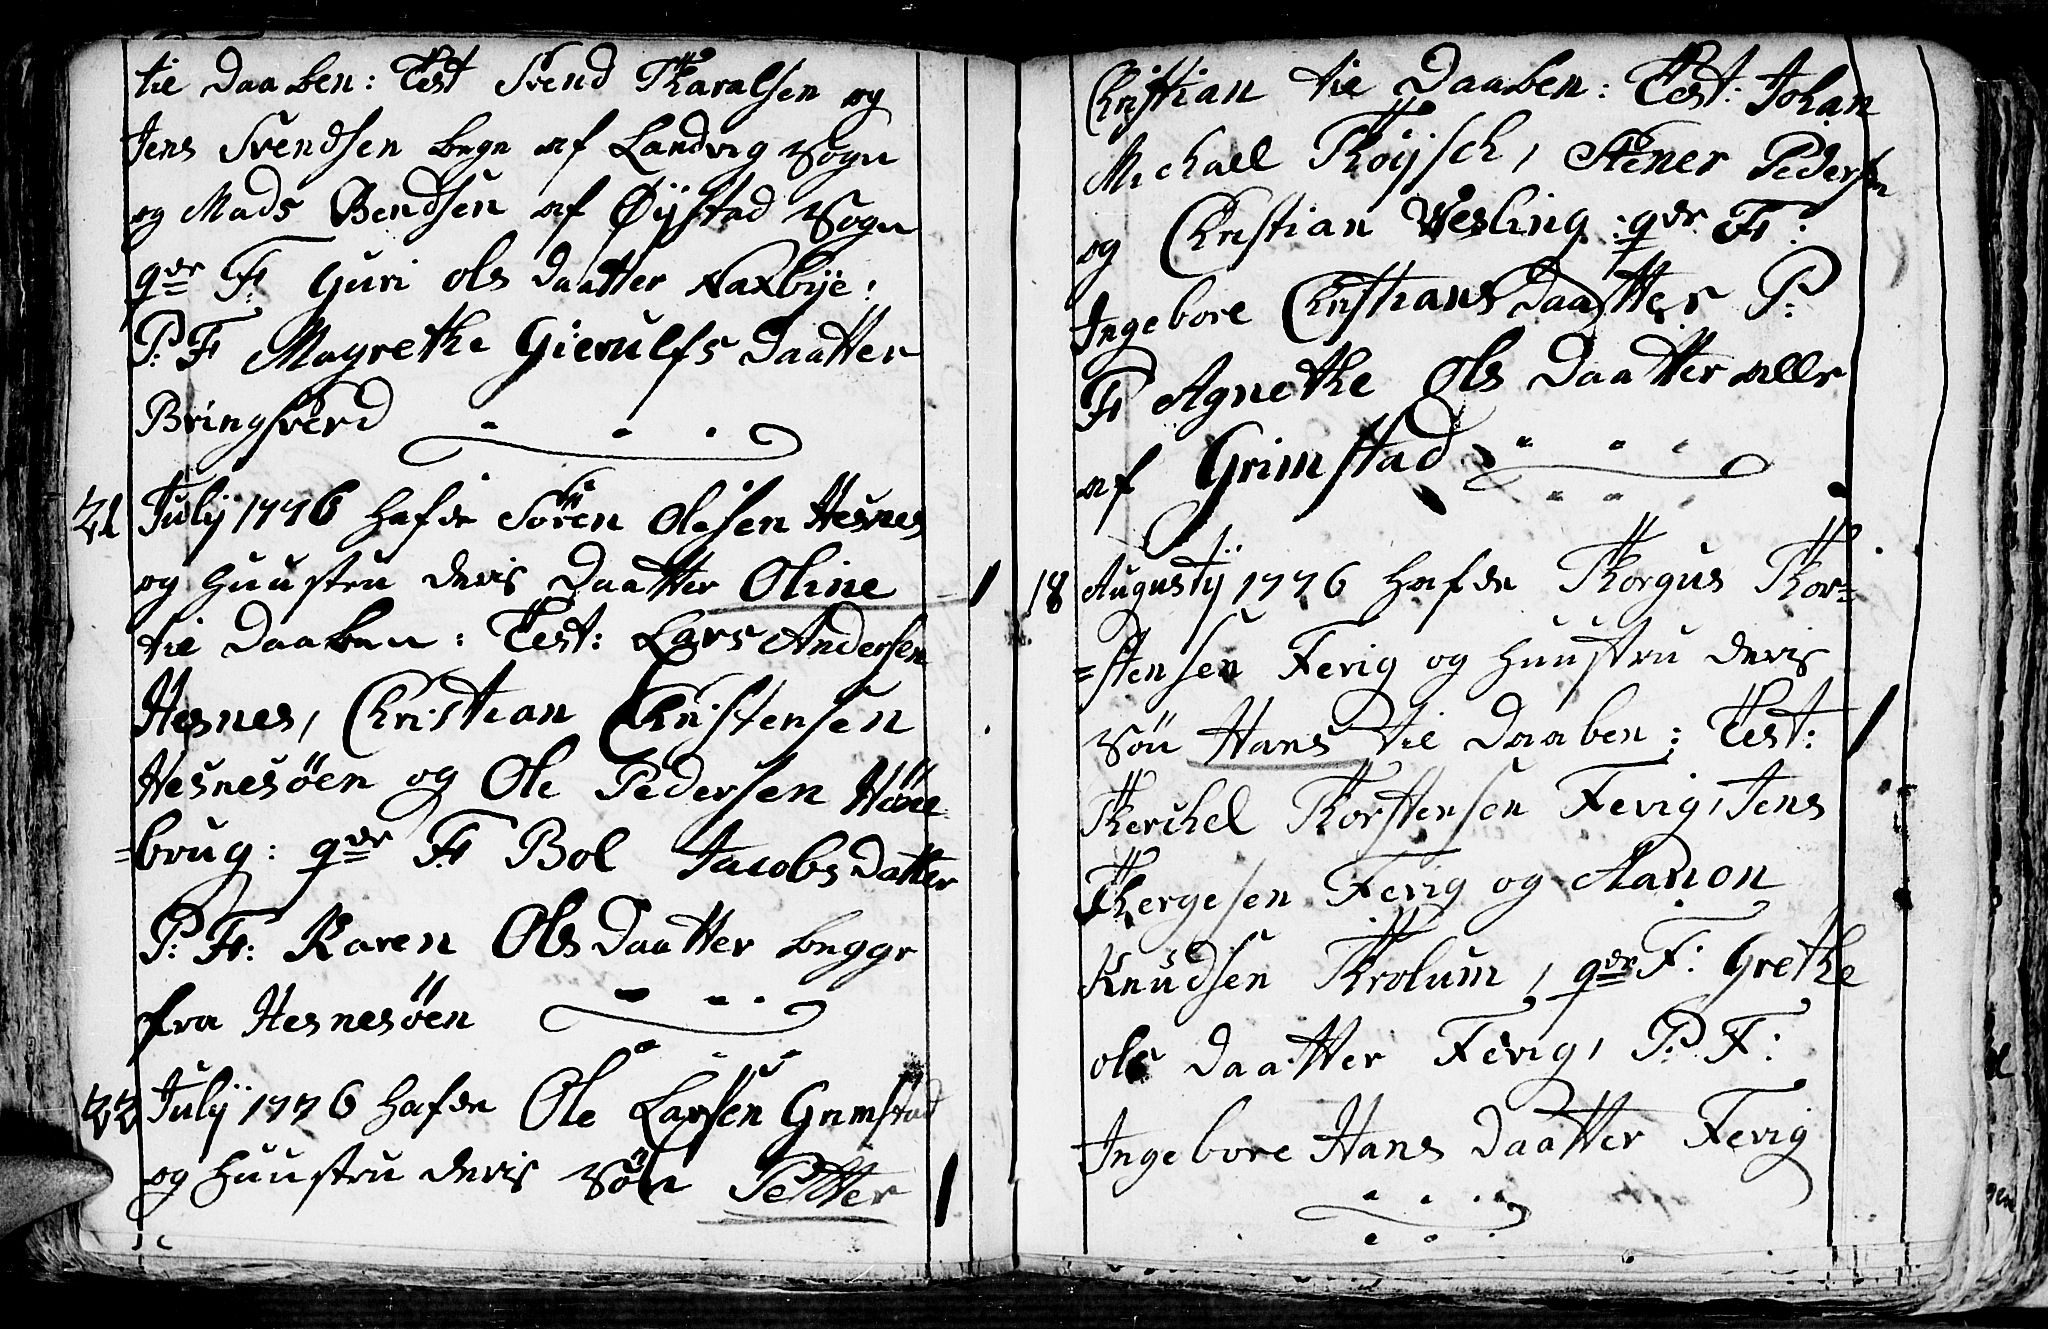 til Daaben: Test Svend Tharalsen og
Jens Svendsen begge af Landvig Sogn
og Mads Bendsen af Øÿstad Sogn
qdr F: Guri Ols Daatter Naxbÿe:
P: F Magrethe Gierulfs Daatter
Bringsverd
21 Julÿ 1776 hafde Sören Olesen Hesnes
og Huustru deris Daatter Oline
til Daaben: Test: Lars Andersen
Hesnes, Christian Christensen
Hesnesöen og Ole Pedersen Höne=
=brug: qdr F Bol Jacobs Datter
P: F: Karen Ols Daatter begge
fra Hesnesöen
22 Julÿ 1776 hafde Ole Larsen Grimstad
og Huustru deris Sön Petter
Christian til Daaben: Test: Johan
Michael Thöÿsch, Stener Pedersen
og Christian Wesling: qdr F:
Ingebore Christians Daatter P:
F Agnethe Ols Daatter alle
af Grimstad
18 Augustÿ 1776 hafde Thorgus Thor=
=stensen Fevig og Huustru deris
Sön Hans til Daaben: Test:
Therchel Thorstensen Fevig, Jens
Thergesen Fevig og Aanon
Knudsen Throlum, qdr F: Grethe
Ols Daatter Fevig, P: F:
Ingebore Hans Daatter Fevig